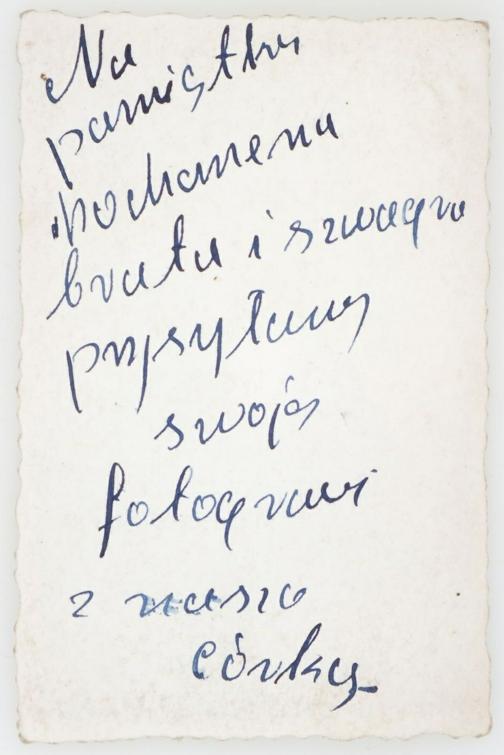 Na
pamiątkę
kochanena
brata i szwagra
przysyłamy
swoją
fotograwi
z naszo
córką